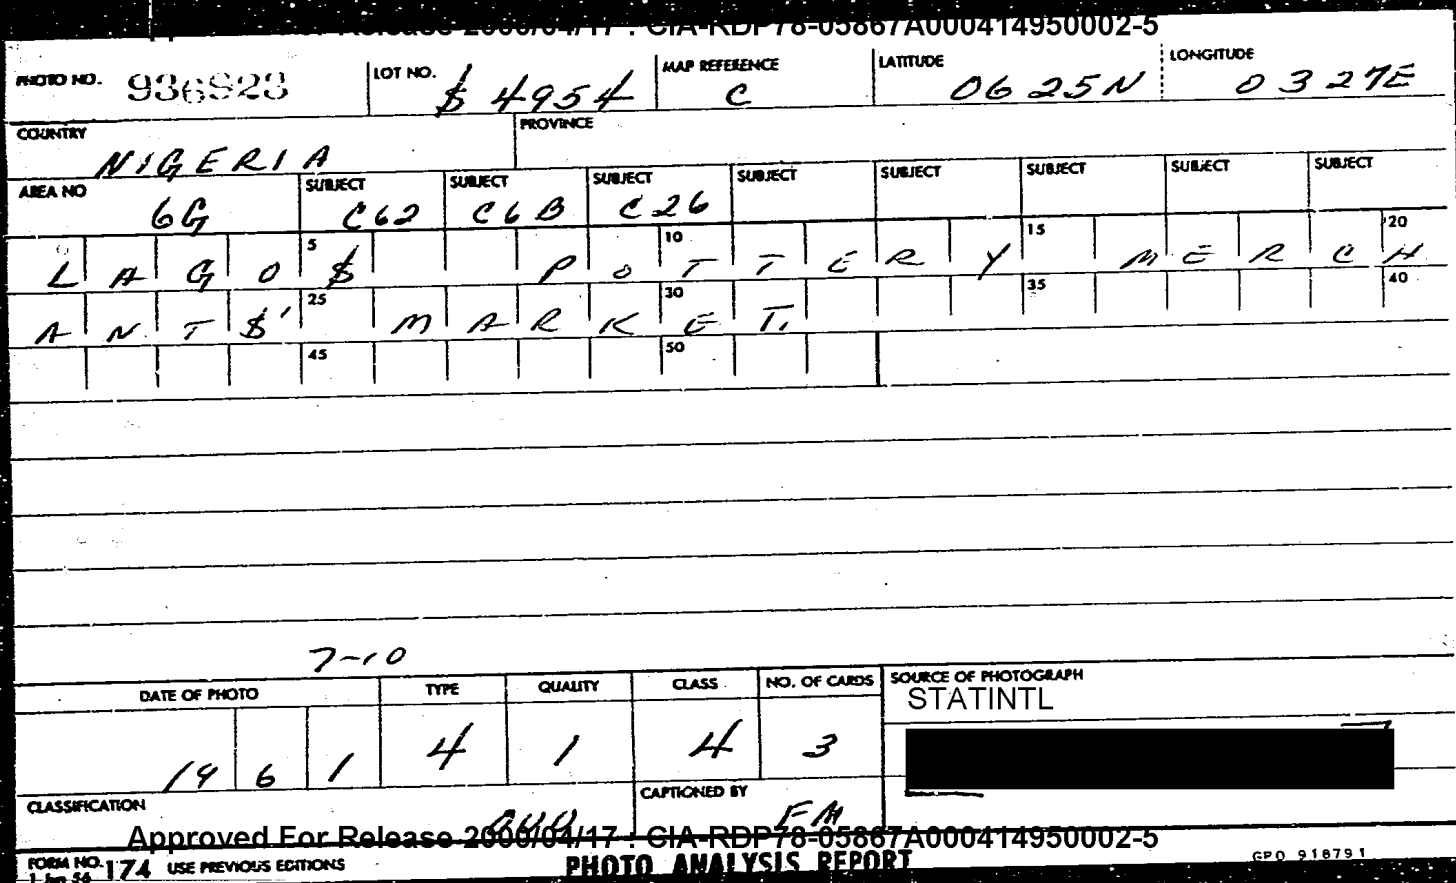 Approved For Release 2000/04/17 : CIA-RDP78-05867A000414950002-5
PHOTO NO. 936823 LOT NO. $ 4954 MAP REFERENCE C LATITUDE 06 25N LONGITUDE 03 27E
COUNTRY NIGERIA PROVINCE
AREA NO 6G SUBJECT C62 SUBJECT C6B SUBJECT C26 SUBJECT SUBJECT SUBJECT SUBJECT SUBJECT
5 10 15 20
LAGO$ POTTERY MERCH
25 30 35 40
ANT$' MARKET.
45 50
7-10
DATE OF PHOTO TYPE QUALITY CLASS NO. OF CARDS SOURCE OF PHOTOGRAPH
STATINTL
1961 4 1 4 3
CLASSIFICATION CAPTIONED BY FM
Approved For Release 2000/04/17 : CIA-RDP78-05867A000414950002-5
FORM NO. 174 USE PREVIOUS EDITIONS PHOTO ANALYSIS REPORT GPO 918791
1 Jan 56